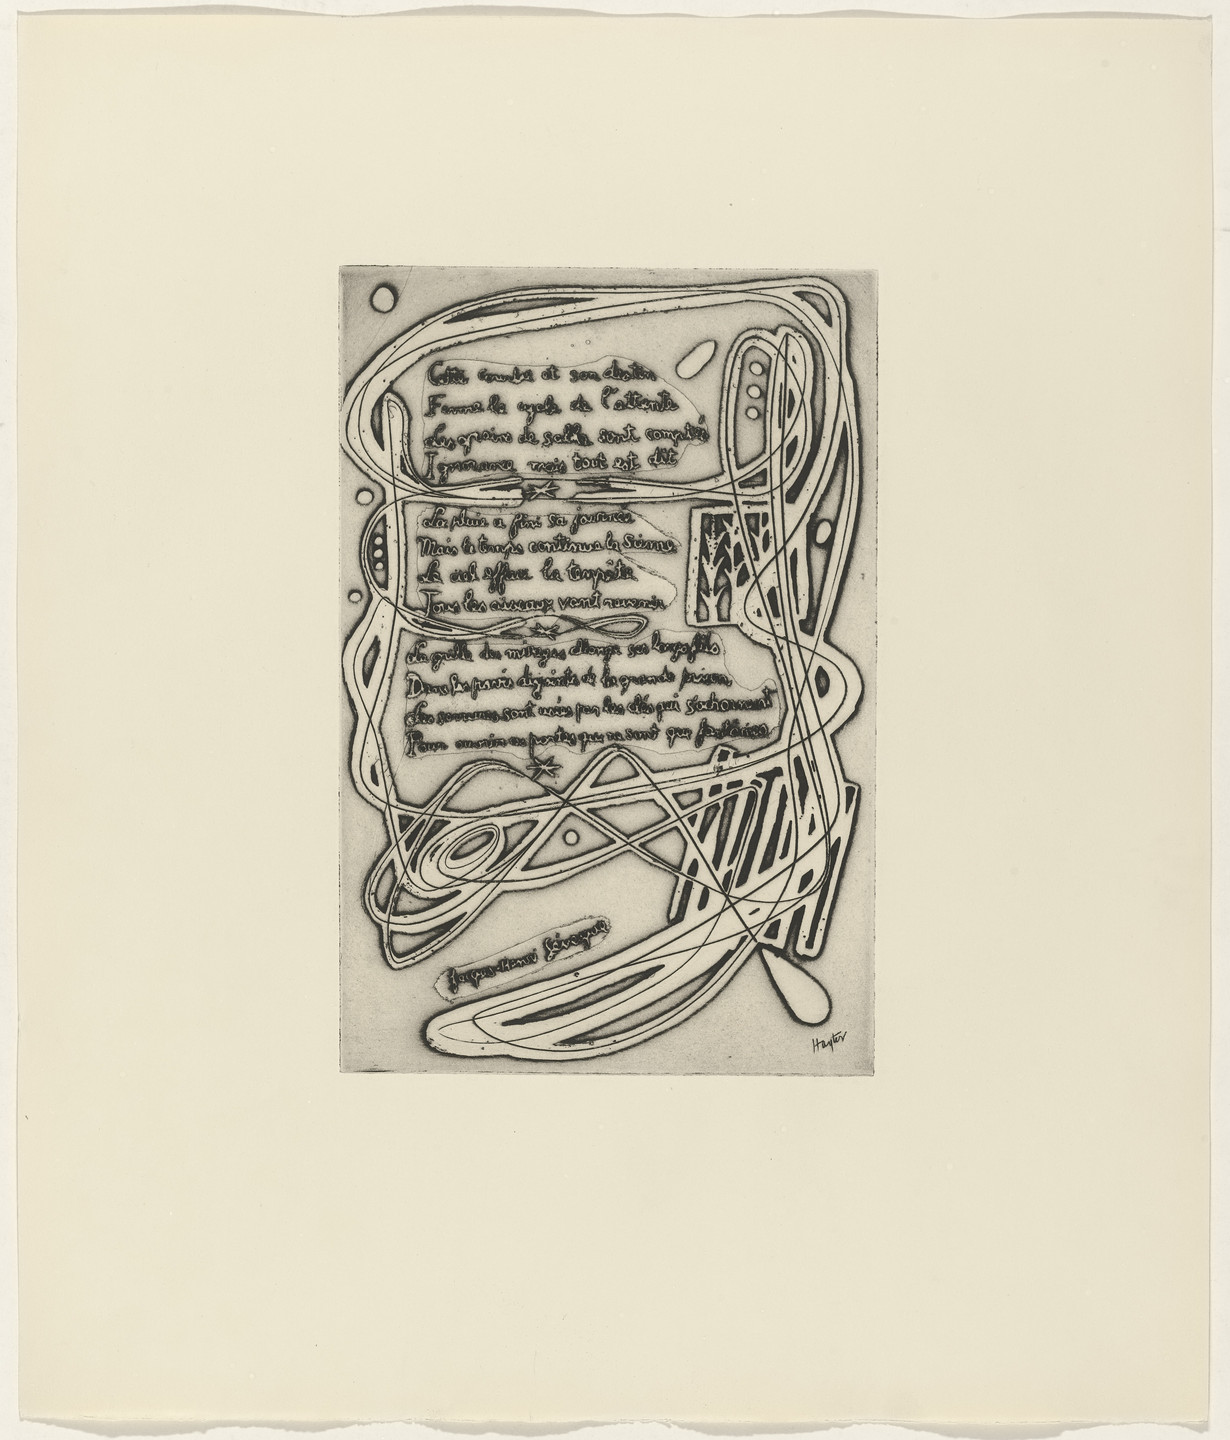 Cette courbe et son destin
Ferme le cycle de l'attente
Les grains de sable sont comptés
Ignorance mais tout est dit
La pluie a fini sa journée
Mais le temps continue la sienne
Le ciel efface la tempête
Tous les oiseaux vont revenir
La grille des mirages allonge ses longs fils
Dans les parois disjointes de la grande prison
Les serrures sont usées par les clés qui s'acharnent
Pour ouvrir ces portes qui ne sont que
Jacques-Henri Lévesque
Hayter